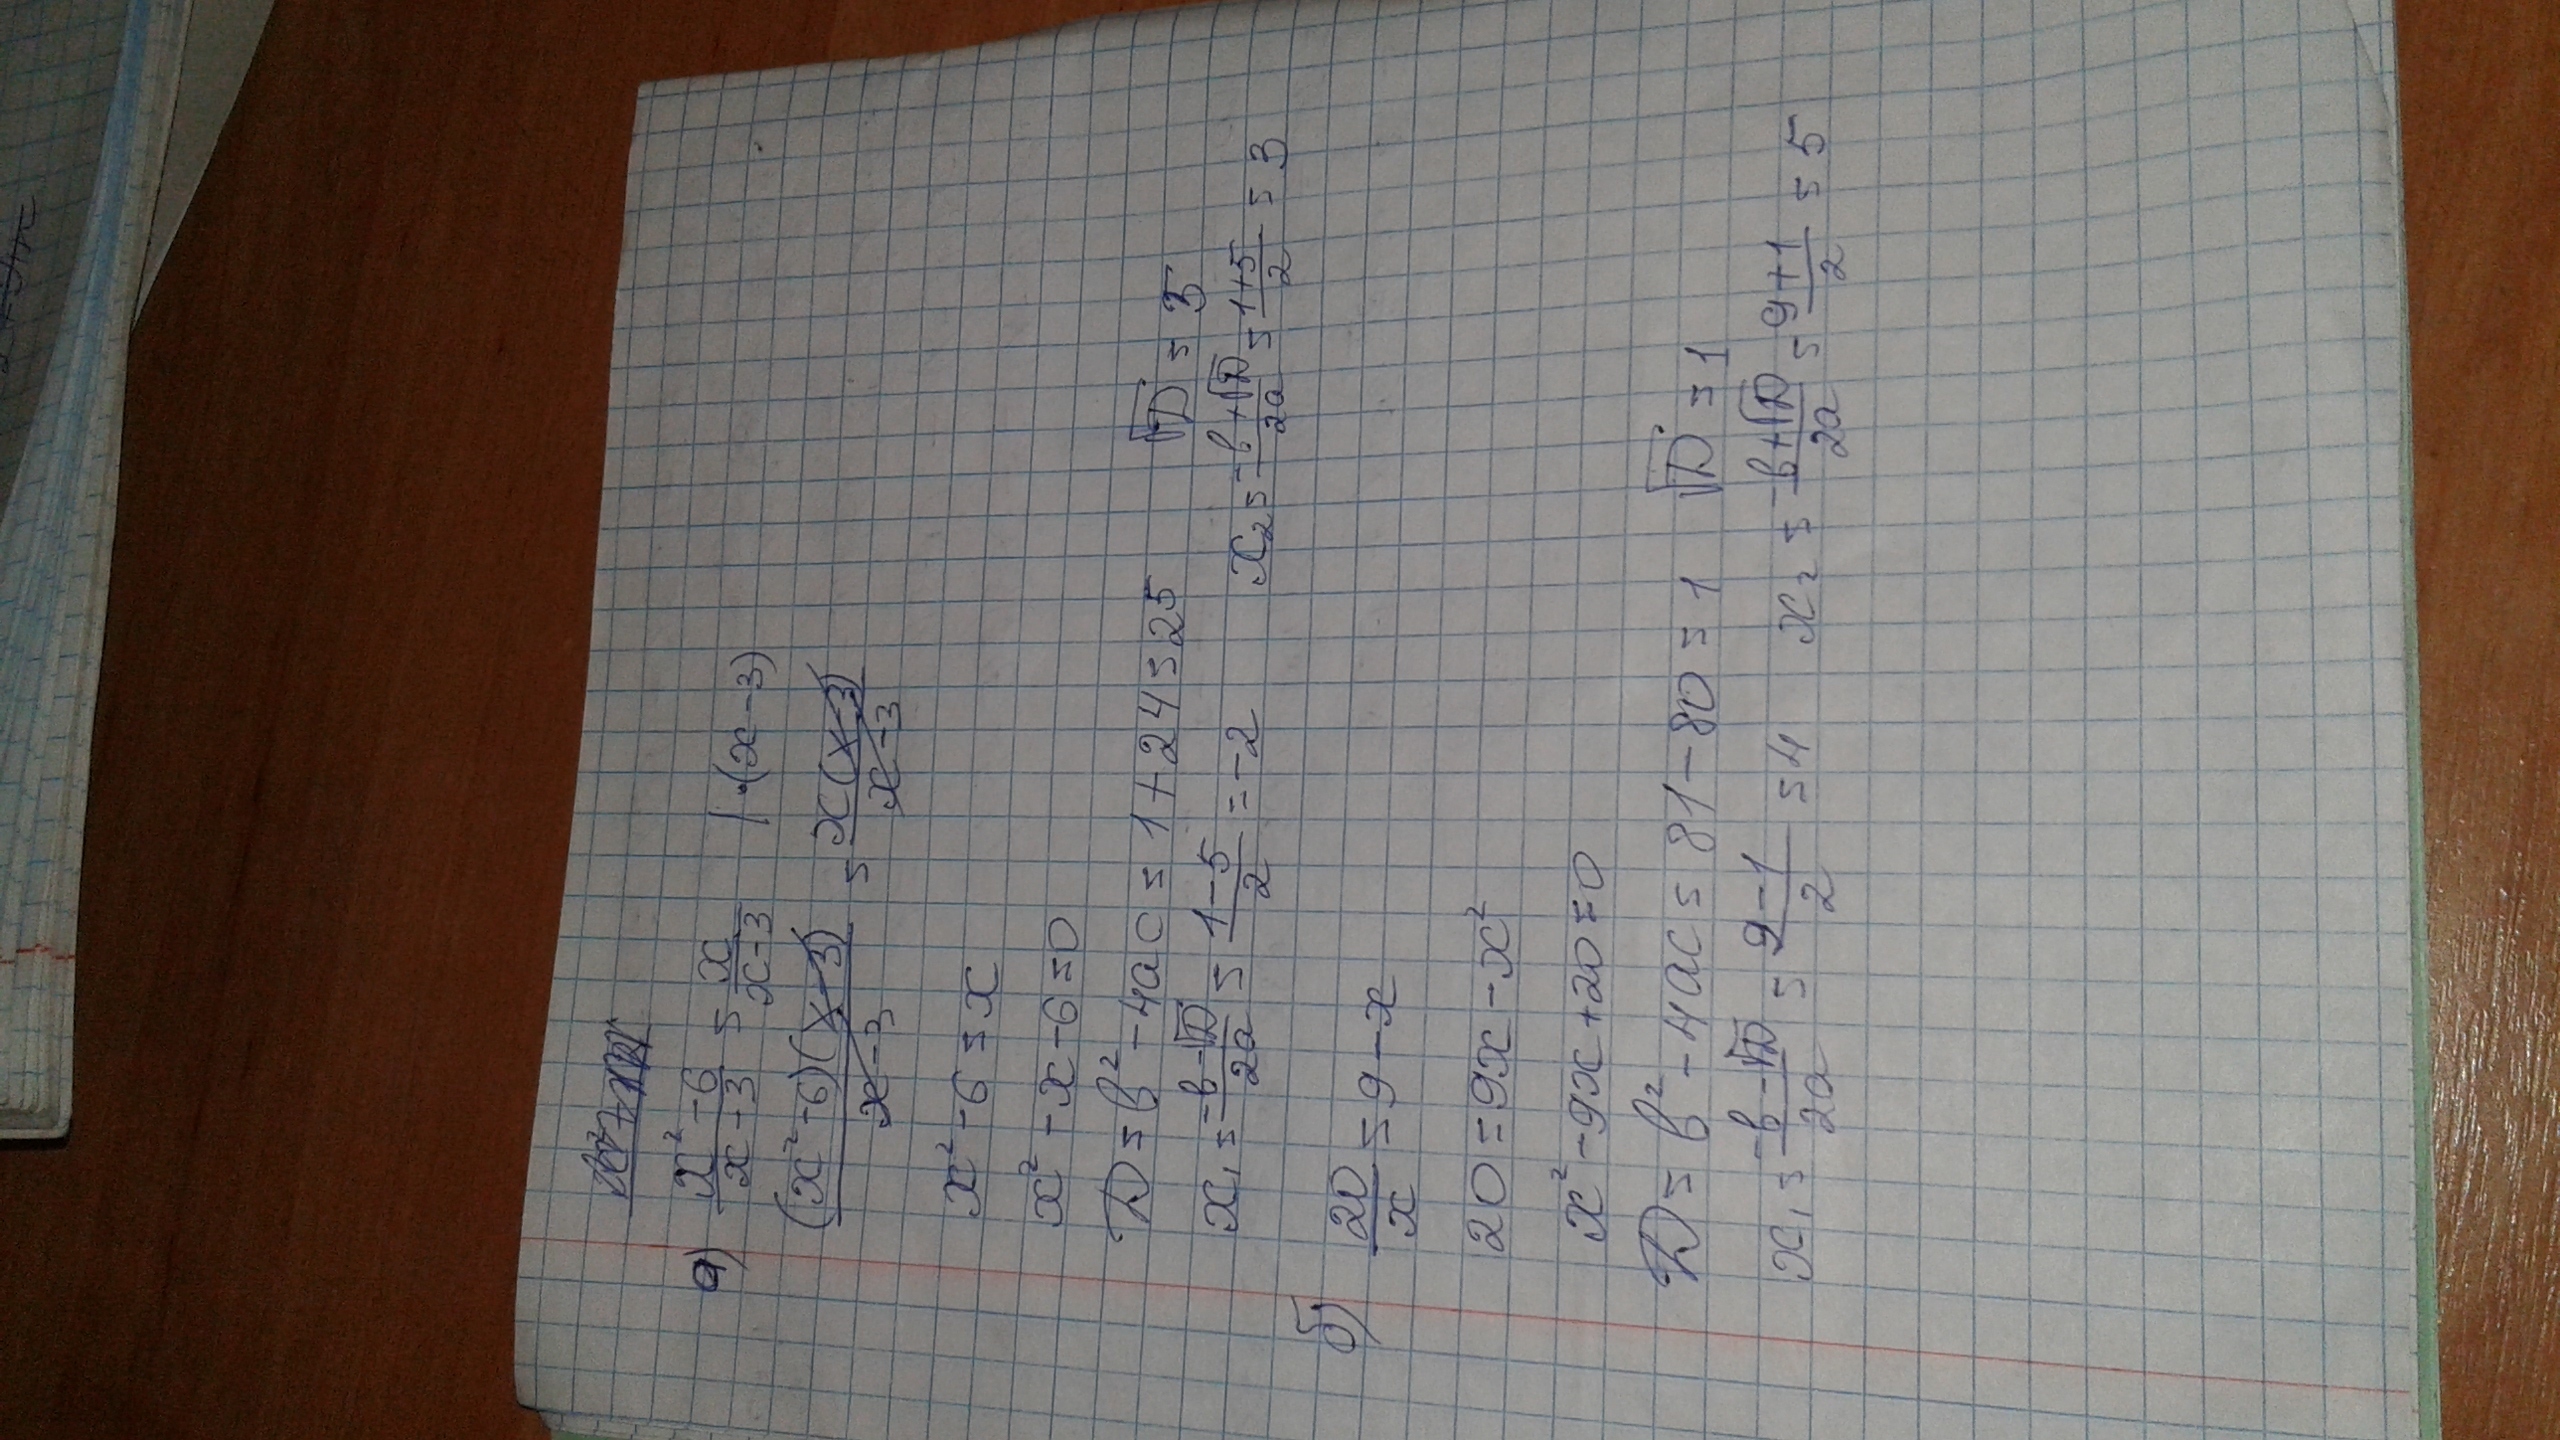 а) x² - 6 / x - 3 = x / x - 3 | · (x - 3)
(x² - 6)(x - 3) / x - 3 = x(x - 3) / x - 3
x² - 6 = x
x² - x - 6 = 0
D = b² - 4ac = 1 + 24 = 25 √D = 5
x₁ = -b - √D / 2a = 1 - 5 / 2 = -2 x₂ = -b + √D / 2a = 1 + 5 / 2 = 3
б) 20 / x = 9 - x
20 = 9x - x²
x² - 9x + 20 = 0
D = b² - 4ac = 81 - 80 = 1 √D = 1
x₁ = -b - √D / 2a = 9 - 1 / 2 = 4 x₂ = -b + √D / 2a = 9 + 1 / 2 = 5